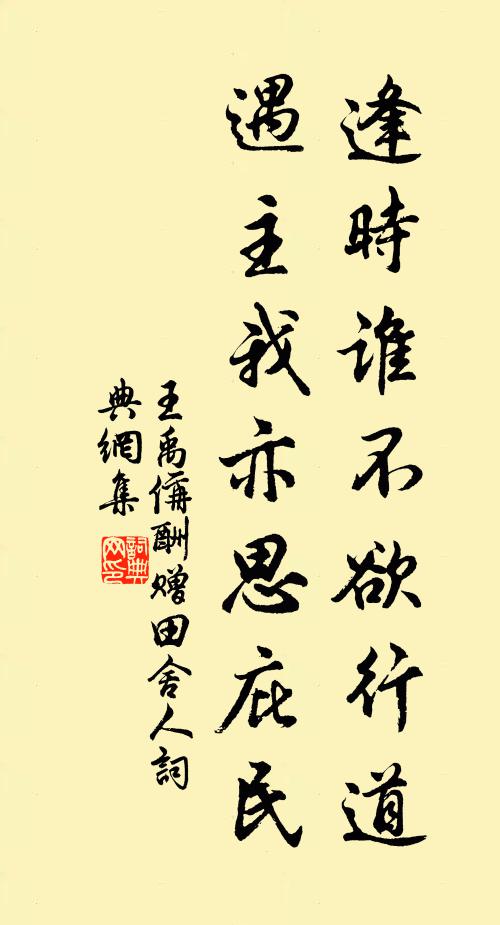 逢時誰不欲行道
遇主我亦思庇民
王禹偁酬贈田舍人詞
典網集
詞典
网印